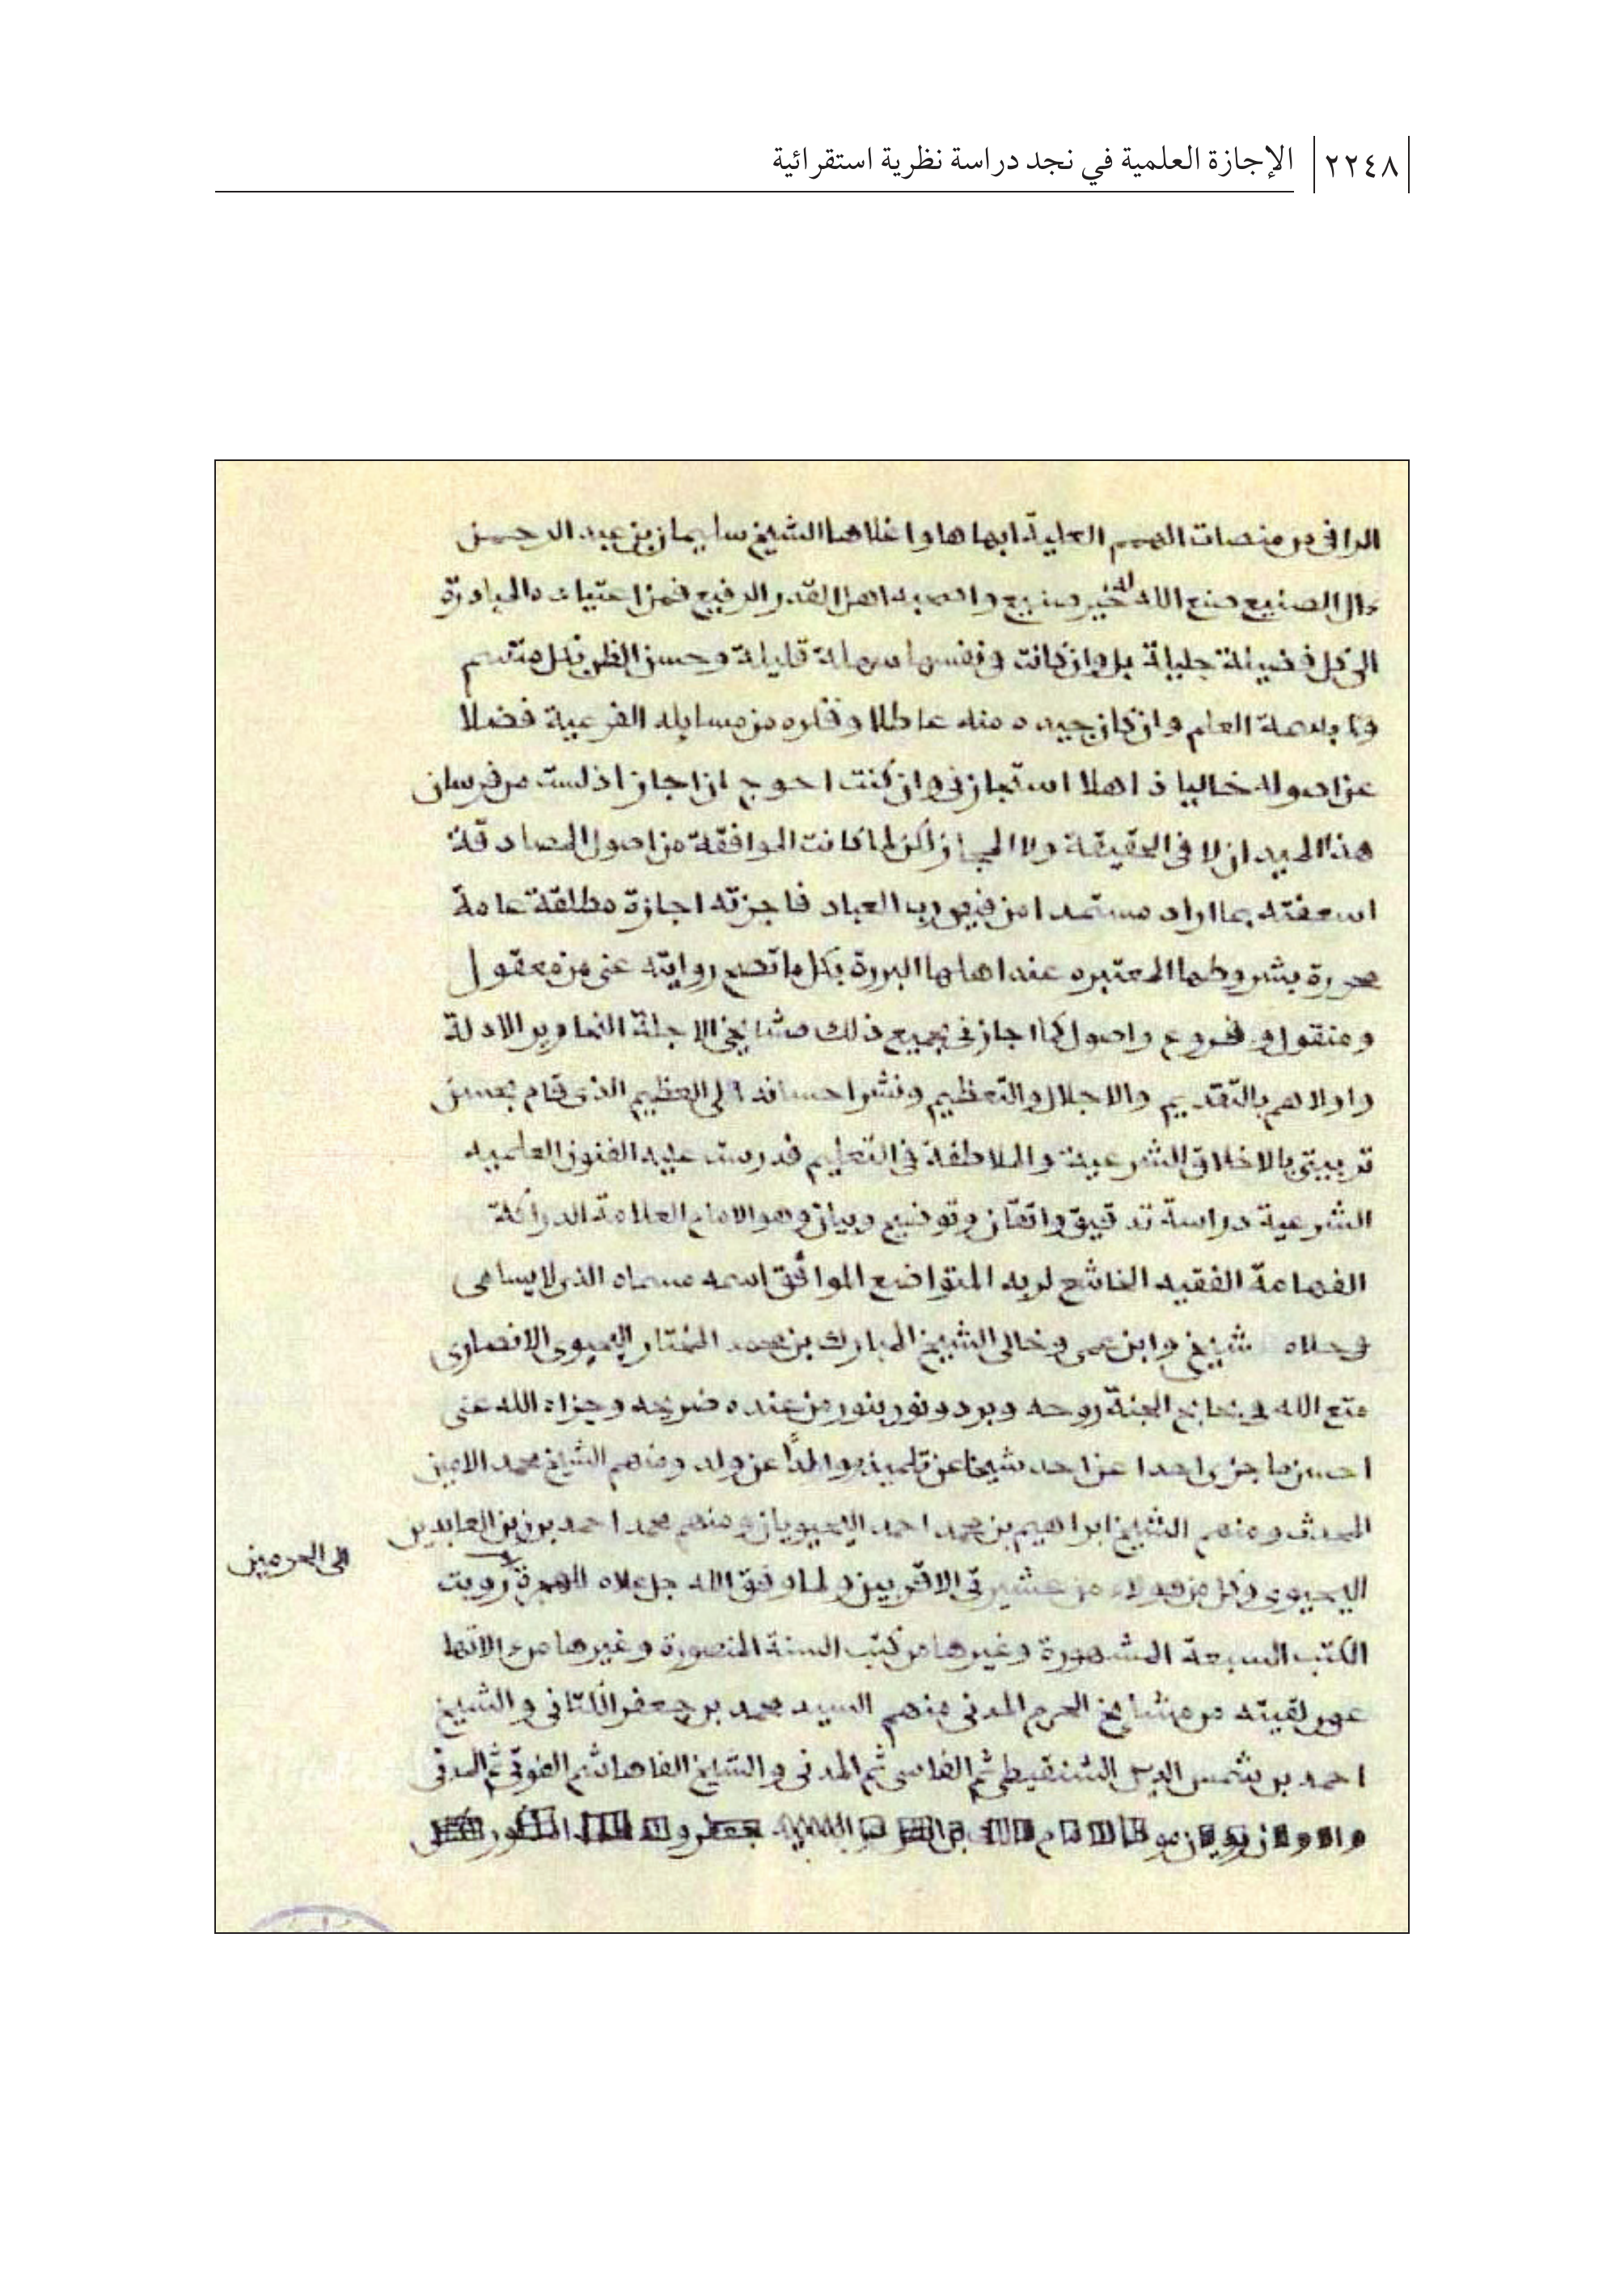 ٢٢٤٨ الإجازة العلمية في نجد دراسة نظرية استقرائية
الراقى من منصات الهمم العلية ابهاها واغلاها الشيخ سليمان بن عبد الرحمن
ءال الصنيع صنع الله له خير صنيع والحقه اهل القدر الرفيع فمن اعتياده المبادرة
الى كل فضيلة جليلة بل وان كانت فى نفسها سهلة قليلة وحسن الظن بكل متسم
بسمة العلم وان كان جيده منه عاطلا وفكره من مسايله الفرعية فضلا
عن اصوله خاليا ذاهلا استجازنى وان كنت احوج ان اجاز اذ لست من فرسان
هذا الميدان لا فى الحقيقة ولا المجاز لكن لما كانت الموافقة من اصول المصادقة
اسعفته بما اراد مستمدا من فيض رب العباد فاجزته اجازة مطلقة عامة
محررة بشروطها المعتبره عند اهلها البررة بكل ما تصح روايته عنى من معقول
ومنقول وفروع واصول كما اجازنى بجميع ذلك مشايخى الاجلة النحارير الادلة
واولاهم بالتقديم والاجلال والتعظيم ونشر احسانه الى العظيم الذى قام بحسن
تربيتى بالاخلاق الشرعية والملاطفة فى التعليم فدرست عليه الفنون العلميه
الشرعية دراسة تدقيق واتقان وتوضيح وبيان وهو الامام العلامة الدراكة
الفهامة الفقيه الخاشع لربه المتواضع الموافق اسمه مسماه الذى لا يسامى
فى علاه شيخى وابن عمى وخالى الشيخ المبارك بن محمد المختار اليحيوى الانصارى
متع الله فى بحابح الجنة روحه وبرد ونور بنور من عنده ضريحه وجزاه الله عنى
احسن ما جزى احدا عن احد شيخا عن تلميذ ووالدا عن ولد ومنهم الشيخ محمد الامين
المحدث ومنهم الشيخ ابراهيم بن محمد احمد اليحيويان ومنهم محمد احمد بن زين العابدين
اليحيوى وكل من هولاء من عشيرتى الاقربين ولما وفق الله جل علاه للهجرة رويت
الى الحرمين
الكتب السبعة المشهورة وغيرها من كتب السنة المنصورة وغيرها من
عمن لقيته من مشايخ الحرم المدنى منهم السيد محمد بن جعفر الكتانى والشيخ
احمد بن شمس الدين الشنقيطى ثم الفاسى ثم المدنى والشيخ الفاهاشم الفوتى ثم المدنى